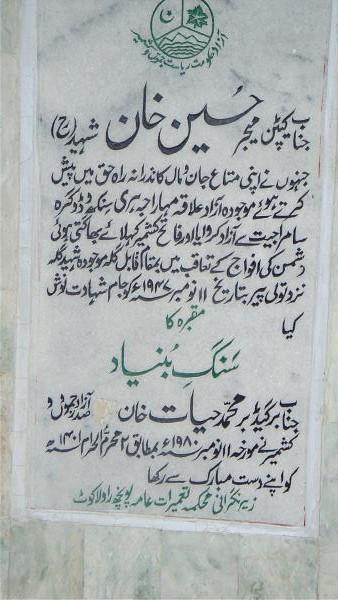 آزاد حکومت ریاست جموں و کشمیر
جناب کیپٹن میجر حسین خان شہید (ح)
جنہوں نے اپنی متاع جان و مال کا نذرانہ راہ حق میں پیش
کرتے ہوئے موجودہ آزاد علاقہ مہاراجہ ہری سنگھ و ڈوگرہ
سامراجیت سے آزاد کروایا اور فاتح کشمیر کہلائے بھاگتی ہوئی
دشمن کی افواج کے تعاقب میں بمقام قابل گلہ موجودہ شہید گلہ
نزد تولی پیر بتاریخ ۱۱ نومبر ۱۹۴۷ء کو جام شہادت نوش
کیا
مقبرہ کا
سنگِ بُنیاد
جناب برگیڈیر محمد حیات خان صدر آزاد جموں و
کشمیر نے مورخہ ۱۱ نومبر ۱۹۸۰ء بمطابق ۲ محرم الحرام ۱۴۰۱ھ
کو اپنے دست مبارک سے رکھا
زیر نگرانی محکمہ تعمیرات عامہ پونچھ راولاکوٹ